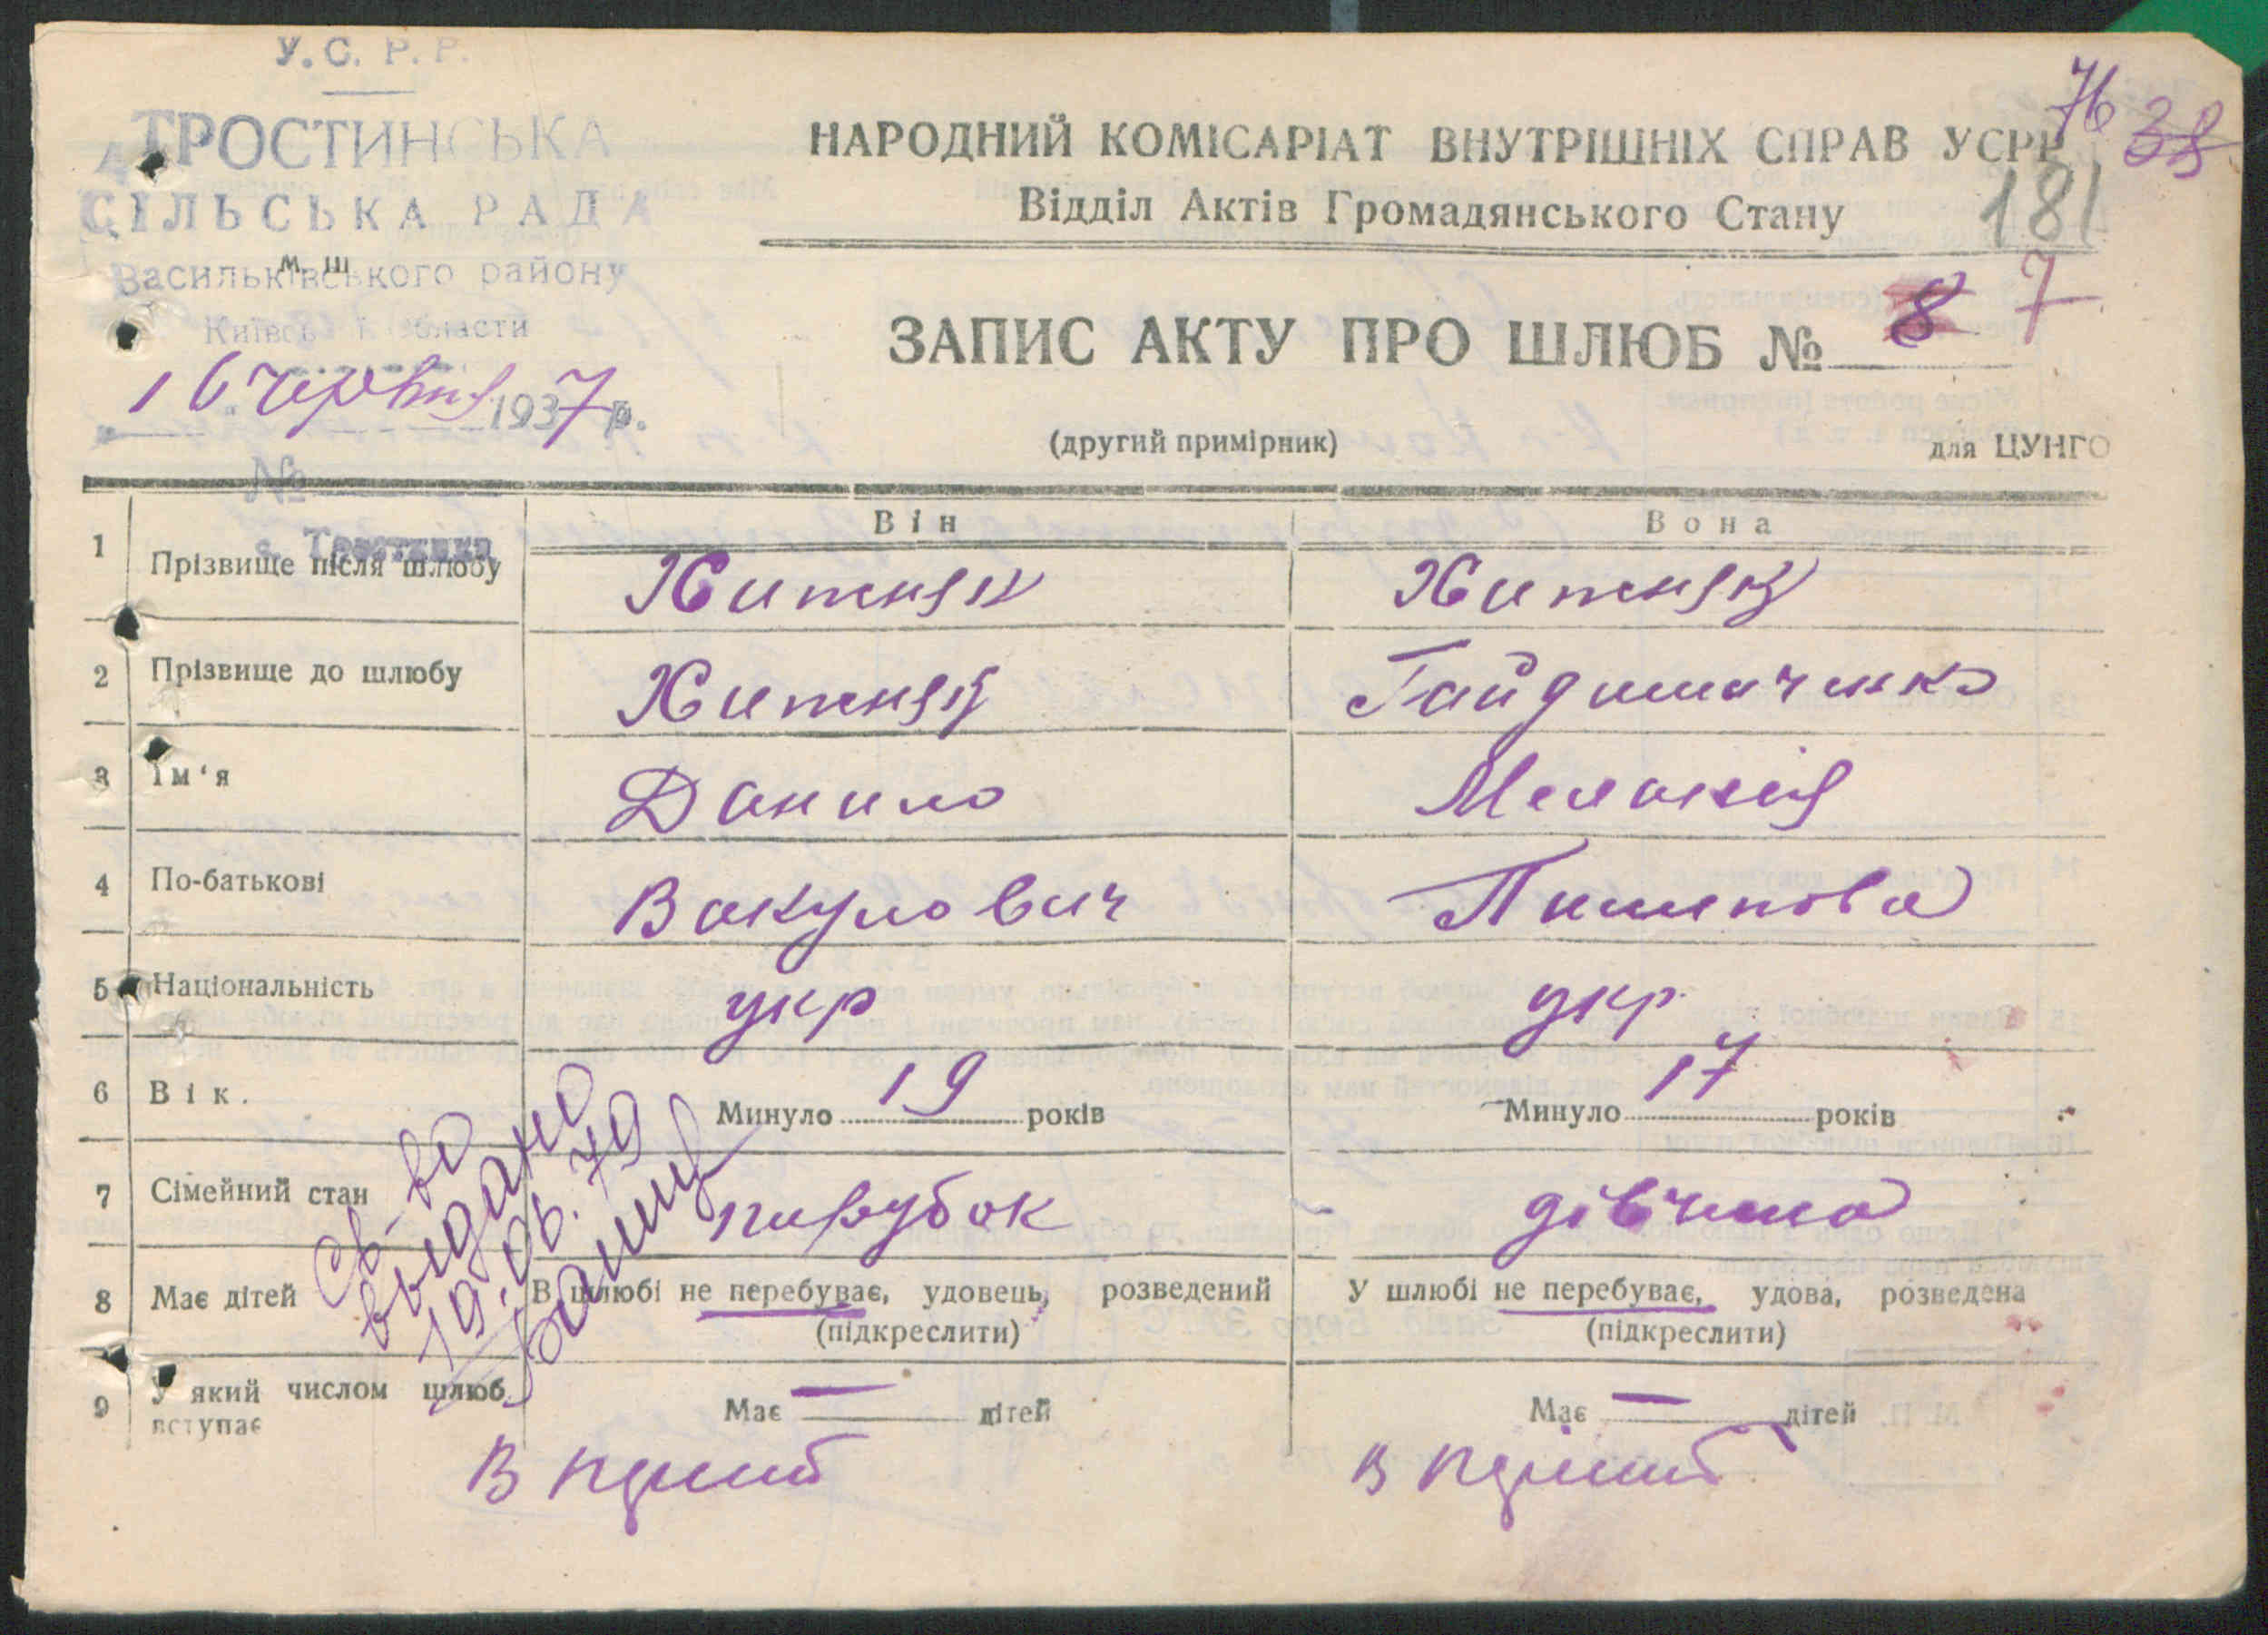 У.С.Р.Р.
ТРОСТИНСЬКА
СІЛЬСЬКА РАДА
м. ш
Васильківського району
Київської области
16 червня 1937 р.
№
с. Тростинка
76 38
НАРОДНИЙ КОМІСАРІАТ ВНУТРІШНІХ СПРАВ УСРР
Відділ Актів Громадянського Стану
181
ЗАПИС АКТУ ПРО ШЛЮБ № 8 7
(другий примірник)
для ЦУНГО
Він Вона
1 Прізвище після шлюбу Житняк Житняк
2 Прізвище до шлюбу Житняк Гайдимаченко
3 Ім‘я Данило Меланія
4 По-батькові Вакулович Пилипова
5 Національність укр укр.
6 Вік. Минуло 19 років Минуло 17 років
7 Сімейний стан парубок дівчина
8 Має дітей В шлюбі не перебуває, удовець, розведений У шлюбі не перебуває, удова, розведена
(підкреслити) (підкреслити)
9 У який числом шлюб вступає Має — дітей Має — дітей
В перший В перший
Св-во
выдано
19.06.79